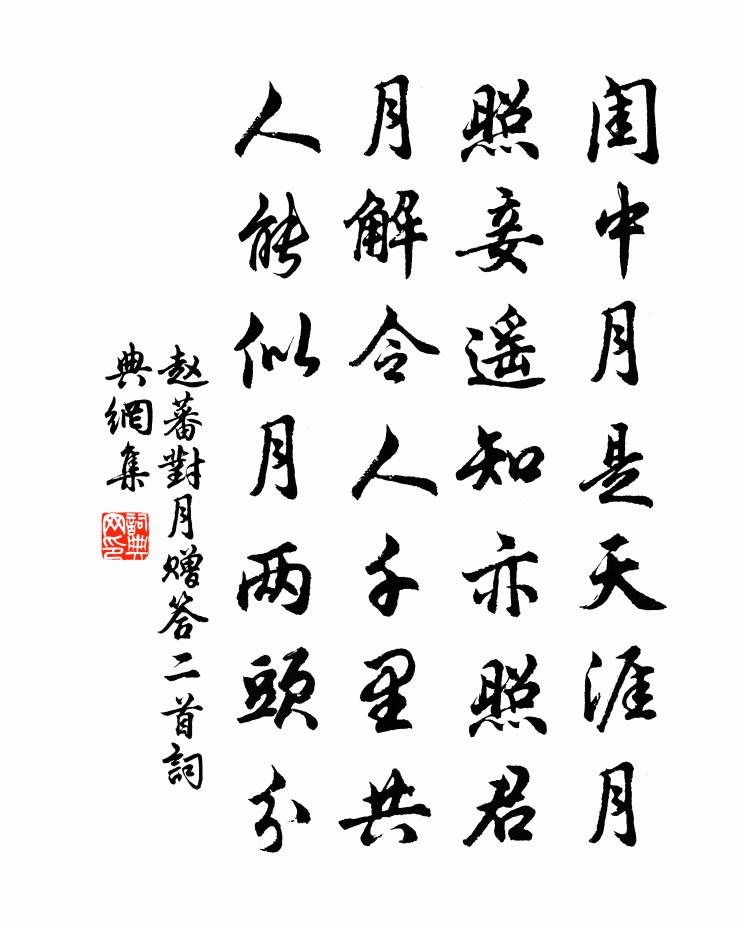 闺中月是天涯月
照妾遥知亦照君
月解令人千里共
人能似月两頭分
赵蕃對月赠答二首詞
典網集
詞典网印